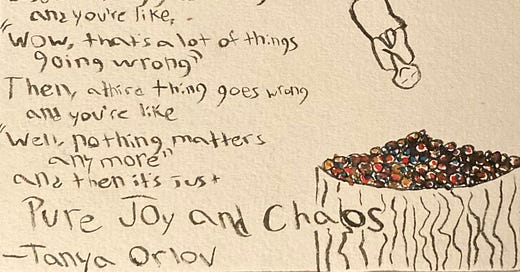 and you're like,
"Wow, that's a lot of things
going wrong"
Then, a third thing goes wrong
and you're like
"Well, nothing matters
any more"
and then it's just
Pure Joy and Chaos
—Tanya Orlov